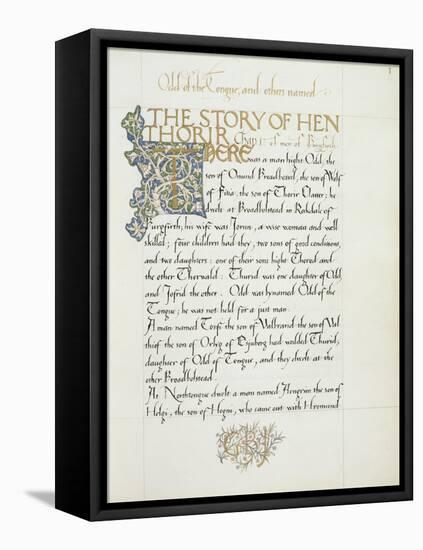 Odd of the Tongue, and others named
1
THE STORY OF HEN
THORIR. Chap. I. of men of Burgfirth
THERE was a man hight Odd, the
son of Onund Broadbeard, the son of Wolf
of Fitia, the son of Thorir Clauer; he
dwelt at Broadbolstead in Rakdale of
Burgfirth; his wife was Jorun, a wise woman and well
skilled; four children had they, two sons of good conditions,
and two daughters: one of their sons hight Thorod and
the other Thorwald: Thurid was one daughter of Odd,
and Jofrid the other. Odd was bynamed Odd of the
Tongue; he was not held for a just man.
A man named Torfi the son of Valbrand the son of Val
thiof the son of Orlyg of Esjuberg had wedded Thurid,
daughter of Odd of Tongue, and they dwelt at the
other Broadbolstead.
At Northtongue dwelt a man named Arngrim the son of
Helgi, the son of Hogni, who came out with Hromund